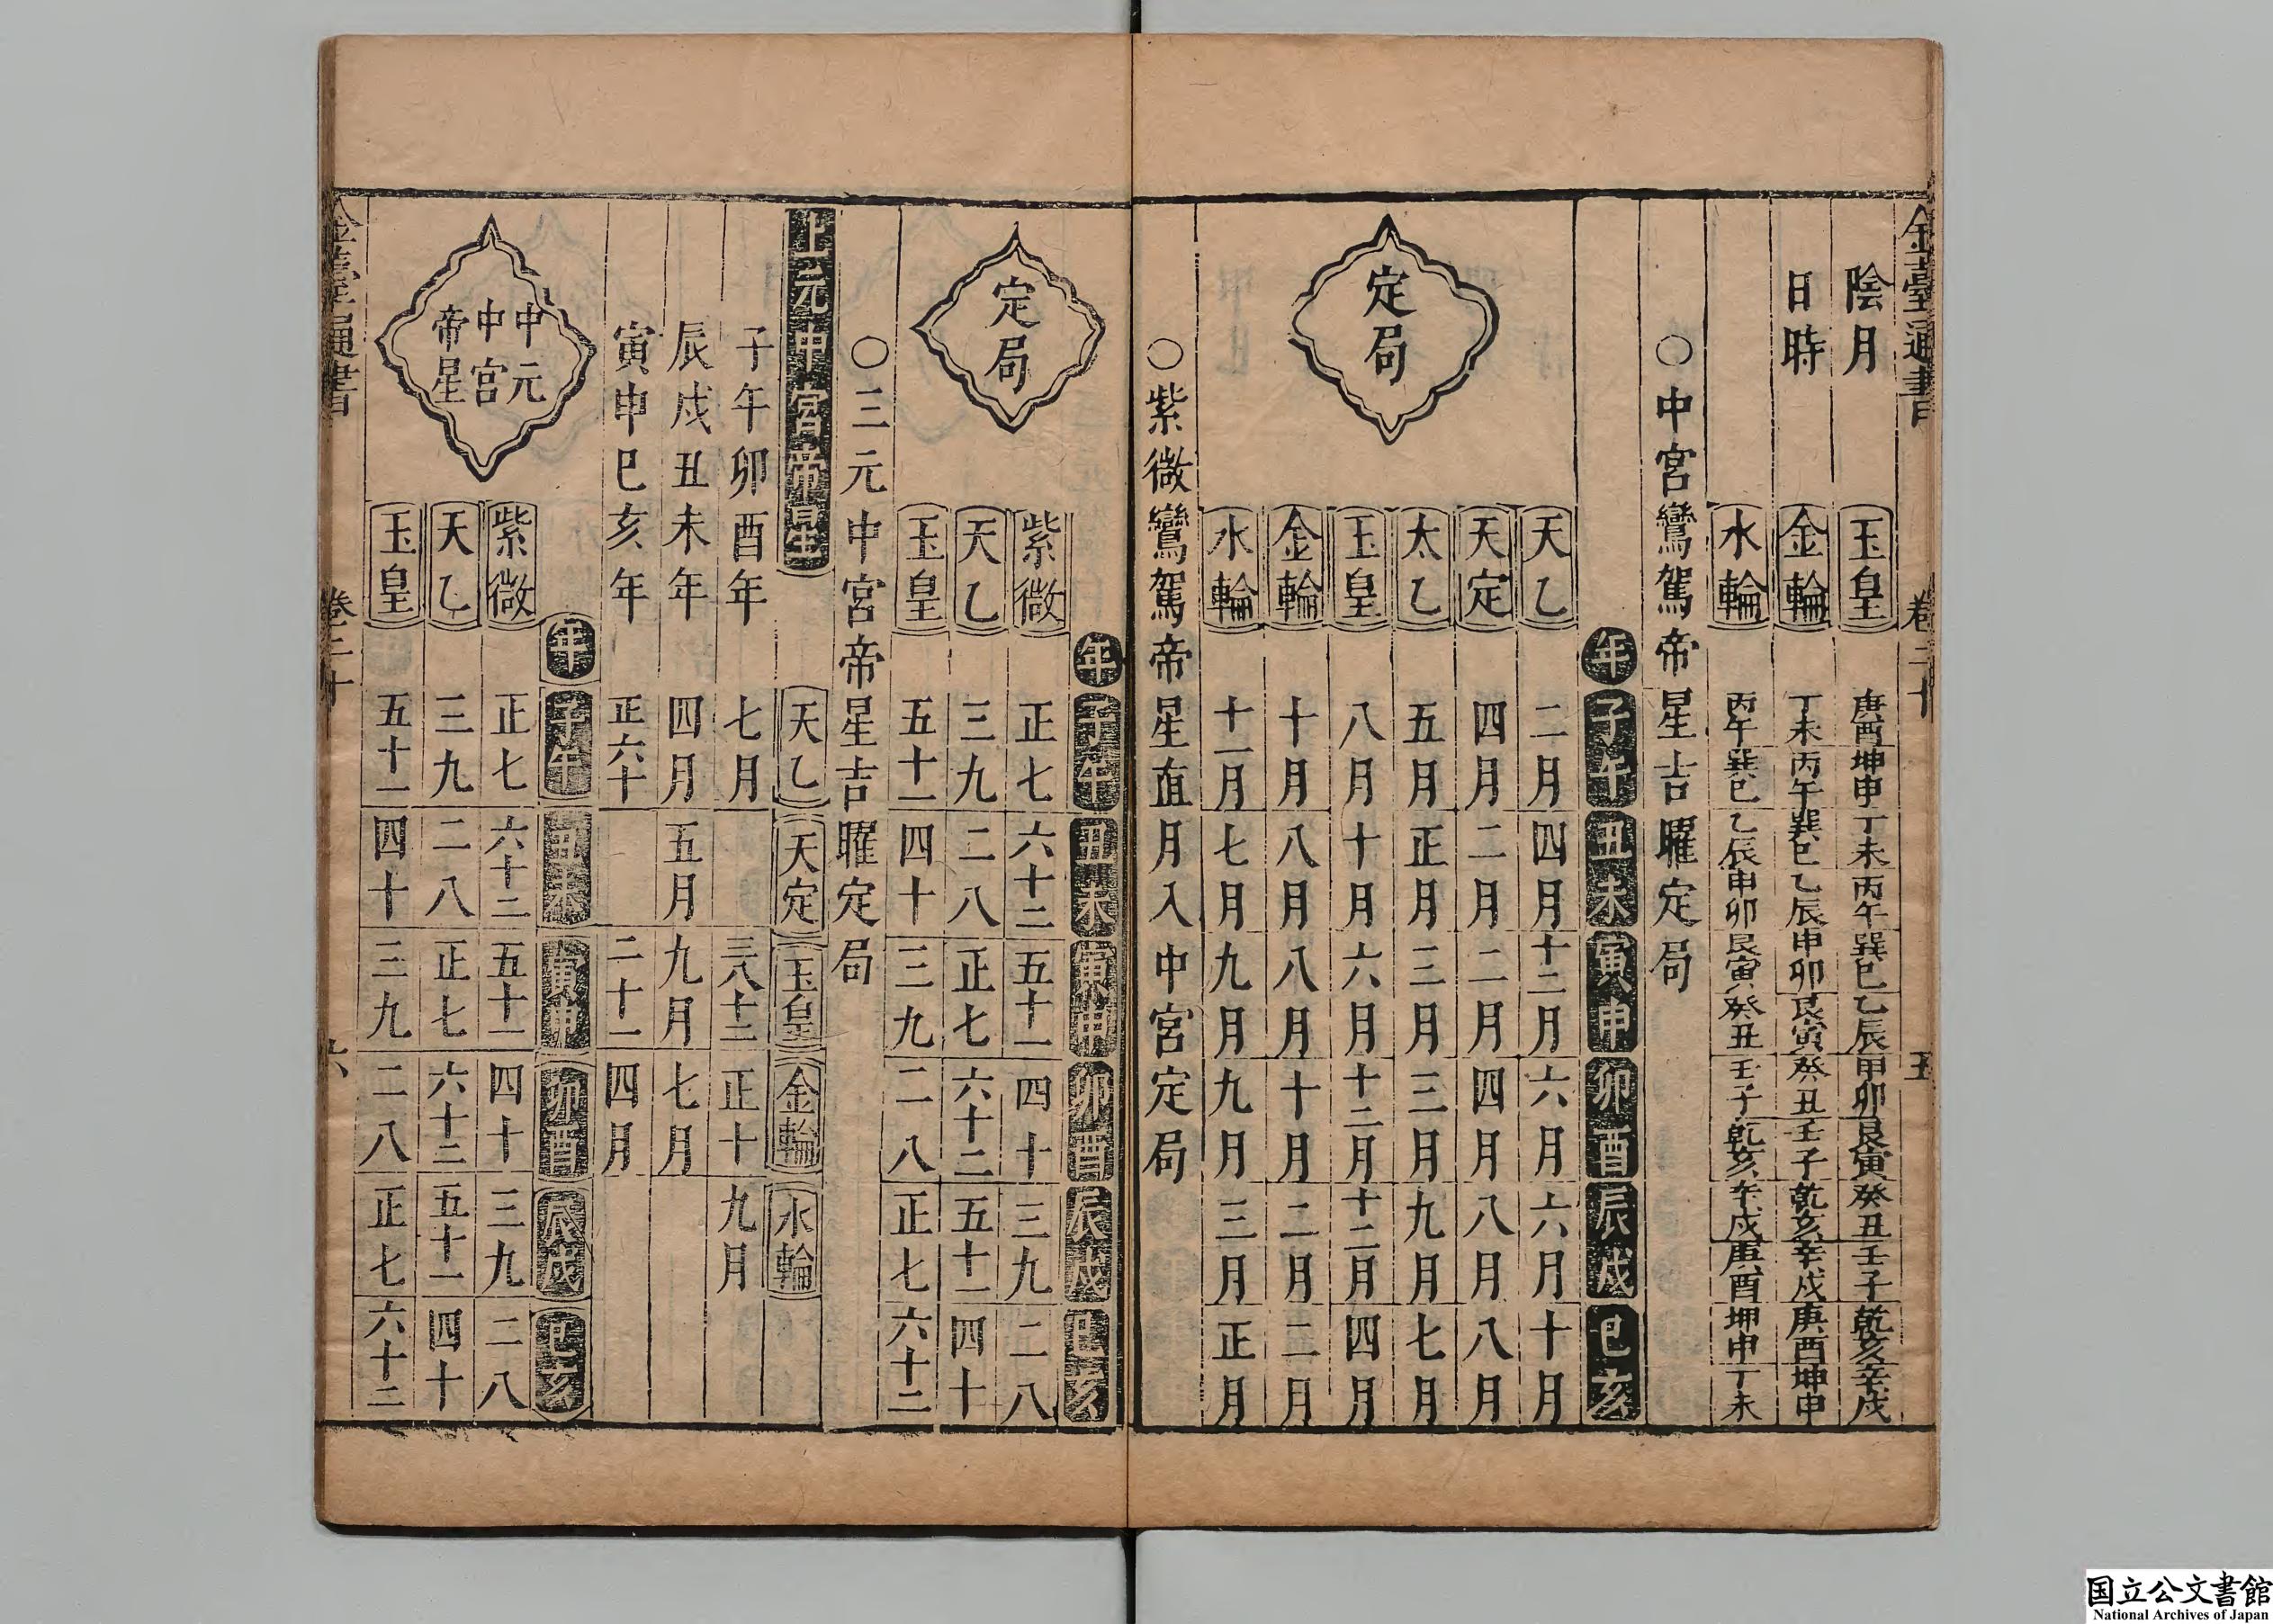 金臺通書 卷二十 五
陰月 玉皇 庚酉 坤申 丁未 丙午 巽巳 乙辰 甲卯 艮寅 癸丑 壬子 乾亥 辛戌
日時 金輪 丁未 丙午 巽巳 乙辰 甲卯 艮寅 癸丑 壬子 乾亥 辛戌 庚酉 坤申
水輪 丙午 巽巳 乙辰 甲卯 艮寅 癸丑 壬子 乾亥 辛戌 庚酉 坤申 丁未
○中宮鸞駕帝星吉曜定局
年 子午 丑未 寅申 卯酉 辰戌 巳亥
天乙 二月 四月 十二月 六月 六月 十月
天定 四月 二月 二月 四月 八月 八月
定局
太乙 五月 正月 三月 三月 九月 七月
玉皇 八月 十月 六月 十二月 十二月 四月
金輪 十月 八月 八月 十月 二月 二月
水輪 十一月 七月 九月 九月 三月 正月
○紫微鸞駕帝星直月入中宮定局
年 子午 丑未 寅申 卯酉 辰戌 巳亥
定局
紫微 正七 六十二 五十一 四十 三九 二八
天乙 三九 二八 正七 六十二 五十一 四十
玉皇 五十一 四十 三九 二八 正七 六十二
○三元中宮帝星吉曜定局
上元中宮帝星 天乙 天定 玉皇 金輪 水輪
子午卯酉年 七月 三八十二 正十 九月
辰戌丑未年 四月 五月 九月 七月
寅申巳亥年 正六十 二十一 四月
年 子午 丑未 寅申 卯酉 辰戌 巳亥
中元
中宮
帝星
紫微 正七 六十二 五十一 四十 三九 二八
天乙 三九 二八 正七 六十二 五十一 四十
玉皇 五十一 四十 三九 二八 正七 六十二
金臺通書 卷二十 六
国立公文書館
National Archives of Japan